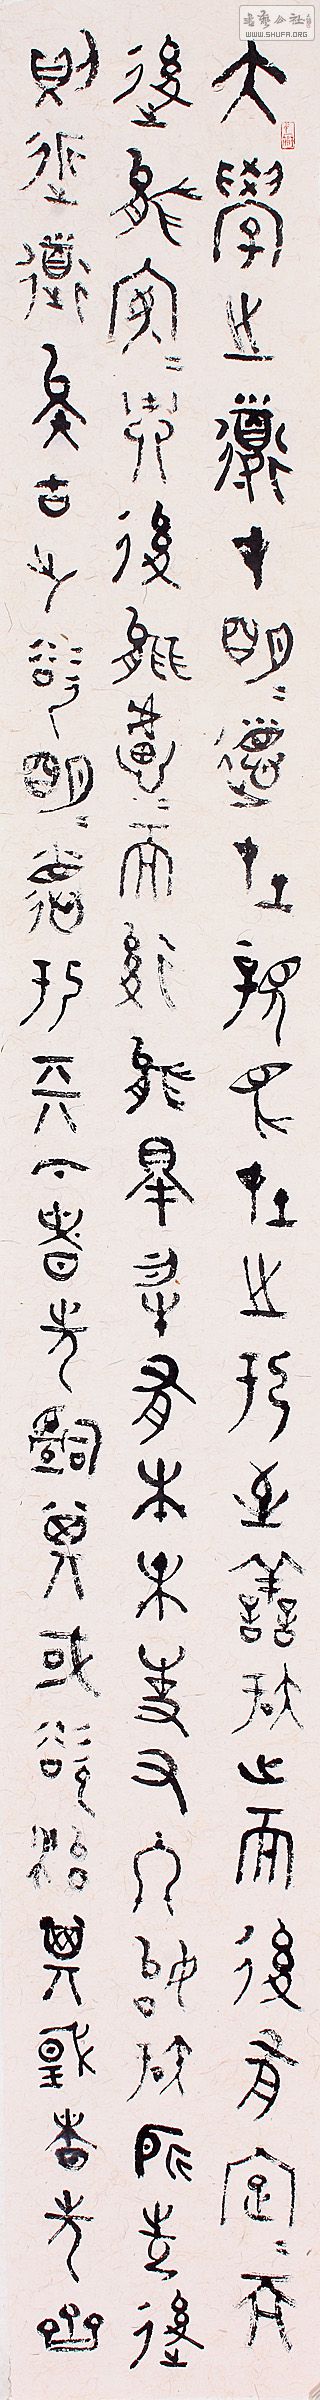 大學之道在明=德在親民在止於至善知止而後有定=而
後能安=而後能慮=而後能得物有本末事又終始知所先後
則近道矣古之欲明=德於天下者先治其國欲治其國者先齊
書藝公社
WWW.SHUFA.ORG